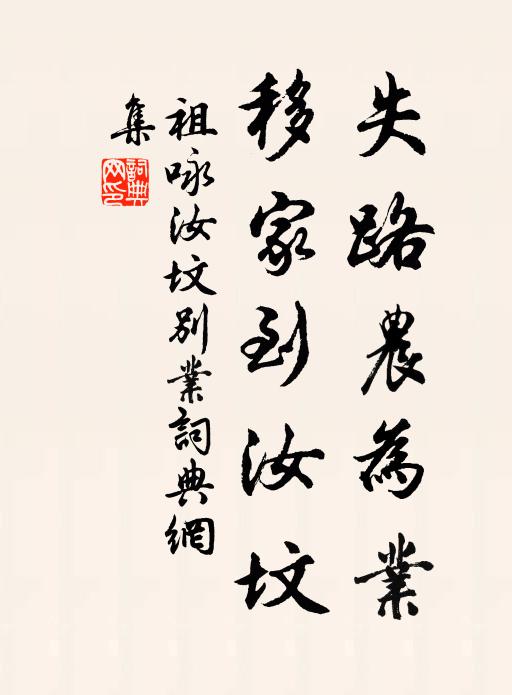 失路農為業
移家到汝墳
祖咏汝墳別業詞典網
集
詞典網印